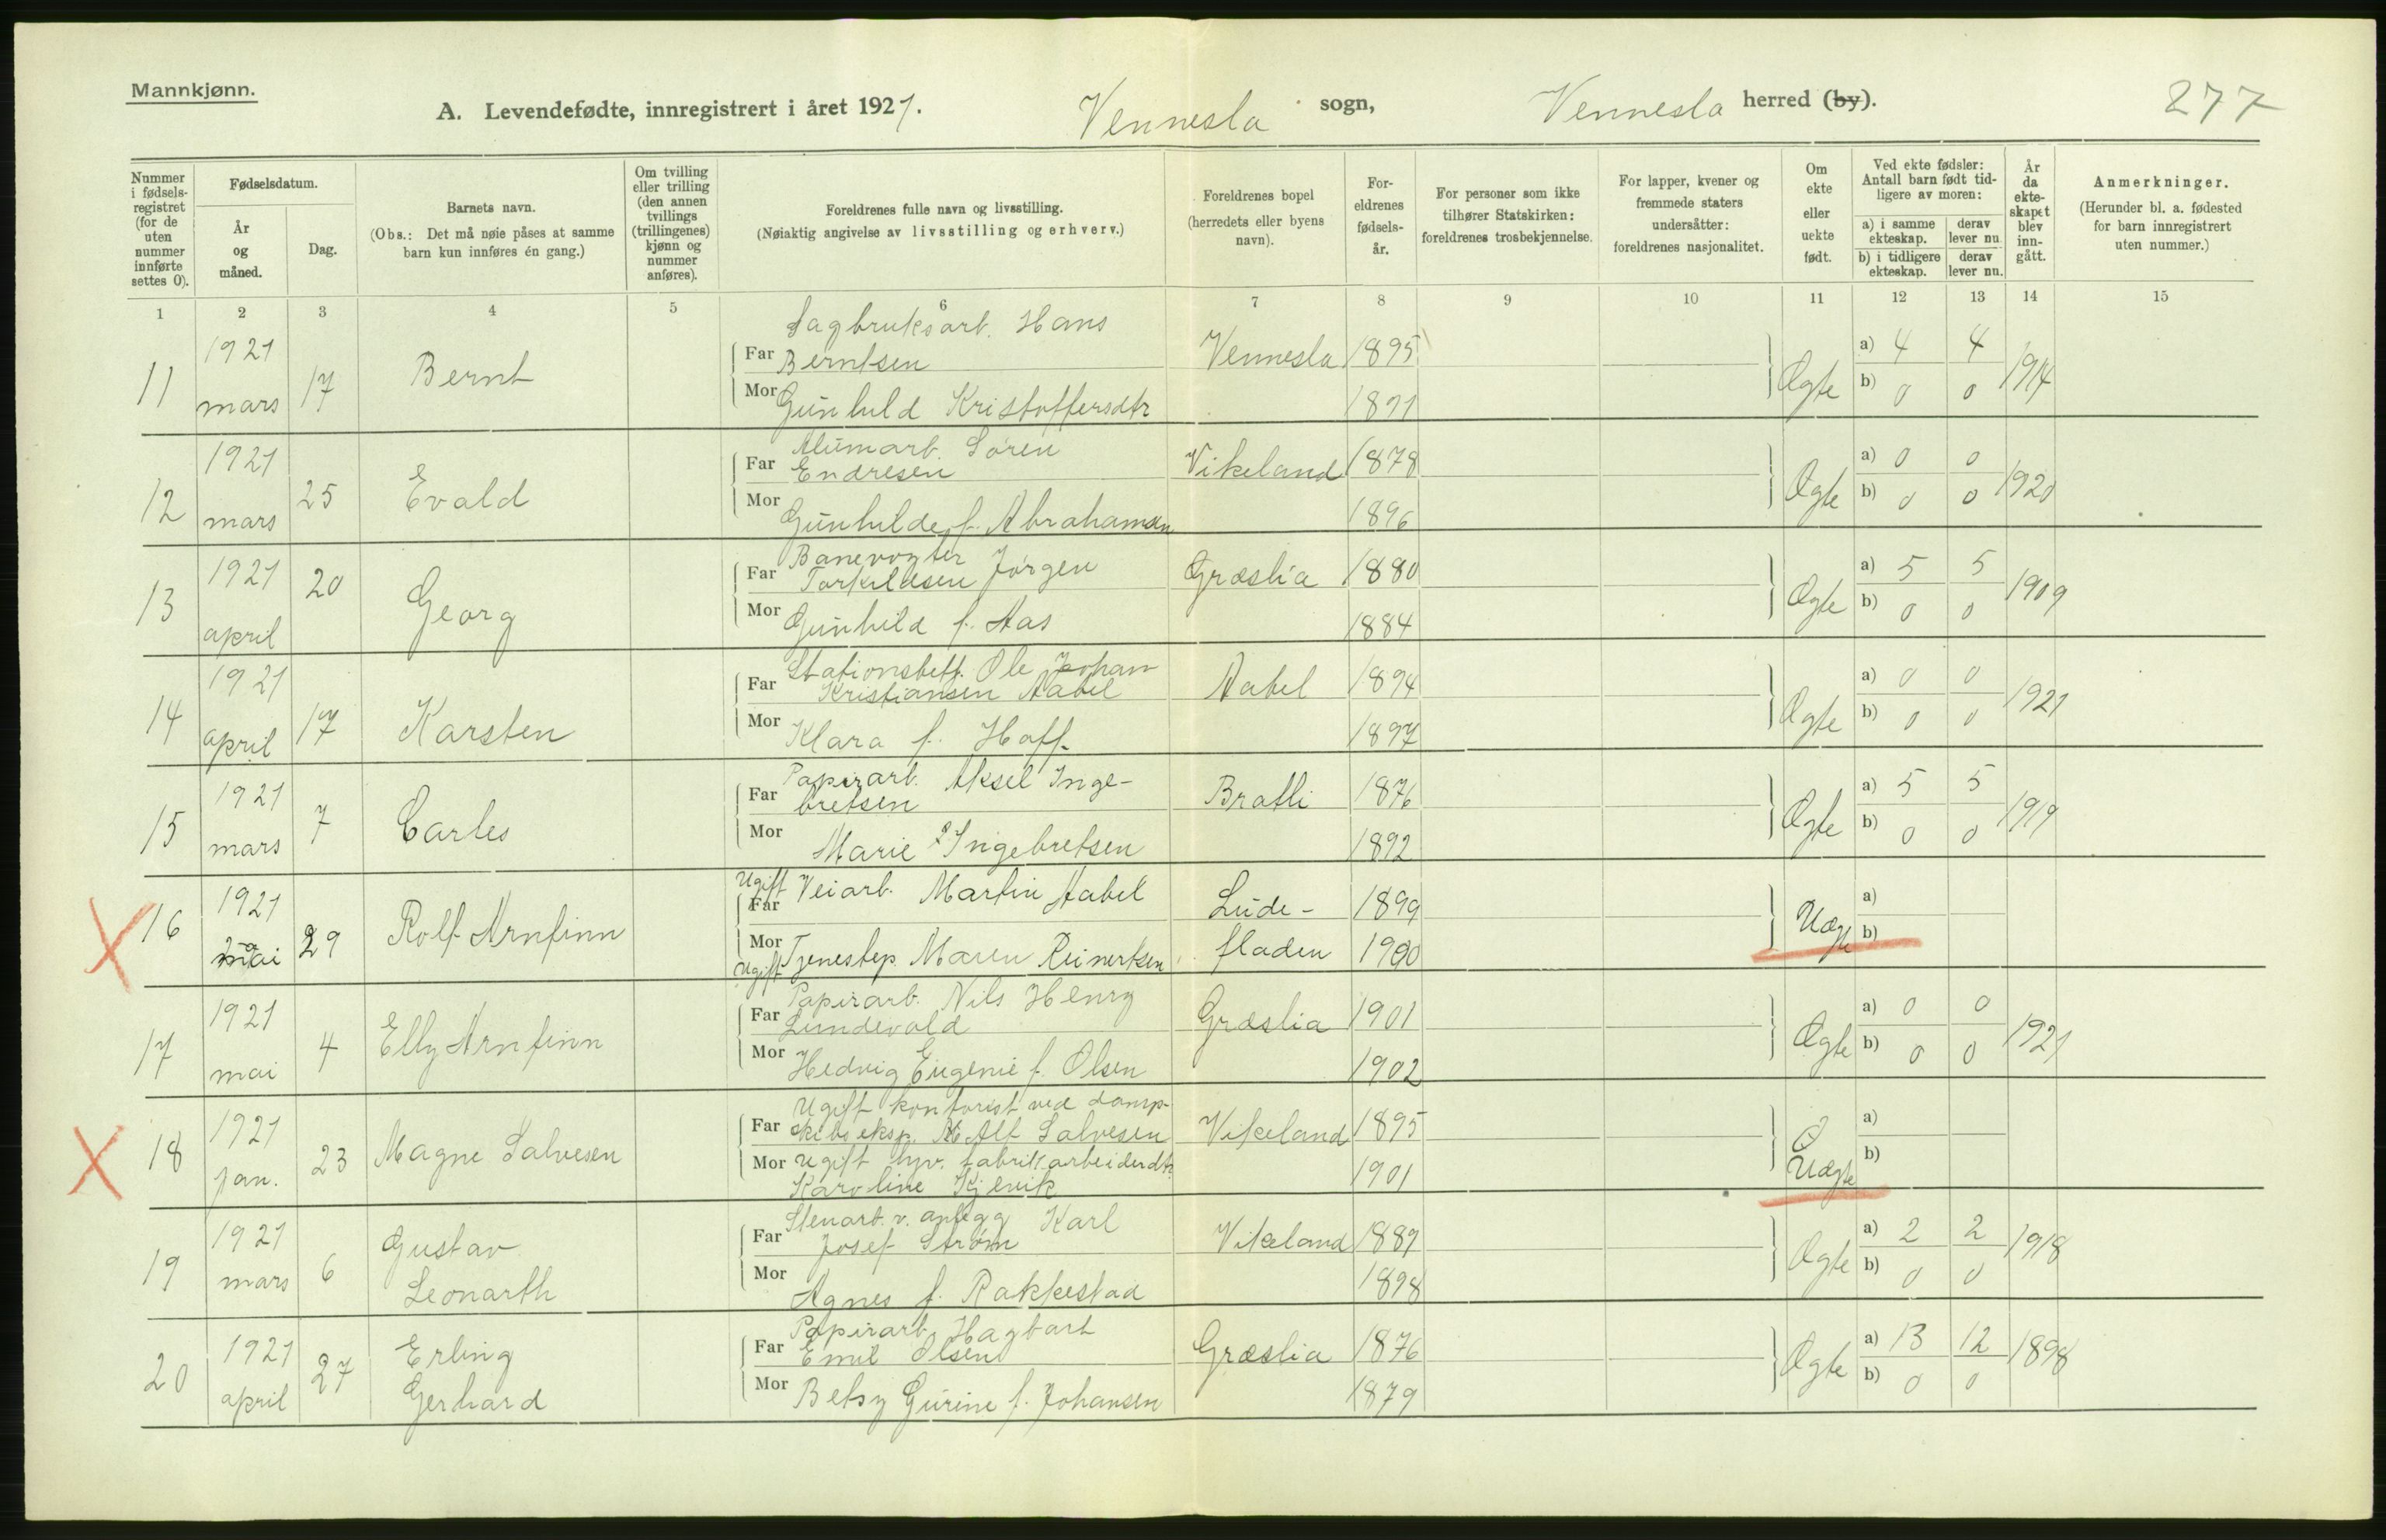 Mannkjønn.
A. Levendefødte, innregistrert i året 1921.
Vennesla sogn,
Vennesla herred (by).
277
Nummer i fødsels- registret (for de uten nummer innførte settes 0).
Fødselsdatum.
År og måned.
Dag.
Barnets navn.
(Obs.: Det må nøie påses at samme barn kun innføres én gang.)
Om tvilling eller trilling (den annen tvillings (trillingenes) kjønn og nummer anføres).
Foreldrenes fulle navn og livsstilling.
(Nøiaktig angivelse av livsstilling og erhverv.)
Foreldrenes bopel
(herredets eller byens navn).
For- eldrenes fødsels- år.
For personer som ikke tilhører Statskirken: foreldrenes trosbekjennelse.
For lapper, kvener og fremmede staters undersåtter: foreldrenes nasjonalitet.
Om ekte eller uekte født.
Ved ekte fødsler: Antall barn født tid- ligere av moren:
a) i samme ekteskap.
derav lever nu.
b) i tidligere ekteskap.
derav lever nu.
År da ekte- skapet blev inn- gått.
Anmerkninger.
(Herunder bl. a. fødested for barn innregistrert uten nummer.)
1 2 3 4 5 6 7 8 9 10 11 12 13 14 15
11 1921 mars 17 Bernt
Sagbruksarb. Hans
Far Berntsen Vennesla 1895 Ægte a) 4 4 1914
Mor Gunhild Kristoffersdtr 1891 b) 0 0
12 1921 mars 25 Evald
Alumarb. Søren
Far Endresen Vikeland 1878 Ægte a) 0 0 1920
Mor Gunhilde f. Abrahamsen 1896 b) 0 0
13 1921 april 20 Georg
Banevogter
Far Torkildsen Jørgen Græslia 1880 Ægte a) 5 5 1909
Mor Gunhild f. Aas 1884 b) 0 0
14 1921 april 17 Karsten
Stationsbetj. Ole Johan
Far Kristiansen Aabel Aabel 1894 Ægte a) 0 0 1921
Mor Klara f. Hoff. 1897 b) 0 0
15 1921 mars 7 Carles
Papirarb. Aksel Inge-
Far bretsen Bratli 1876 Ægte a) 5 5 1919
Mor Marie Ingebretsen 1892 b) 0 0
X 16 1921 mai 29 Rolf Arnfinn
Ugift Far Veiarb. Martin Aabel Lude- 1899 Uægte a)
Mor Ugift Tjenestep. Maren Reinertsen fladen 1900 b)
17 1921 mai 4 Elly Arnfinn
Papirarb. Nils Henry
Far Lundevold Græslia 1901 Ægte a) 0 0 1921
Mor Hedvig Eugenie f. Olsen 1902 b) 0 0
X 18 1921 jan. 23 Magne Salvesen
Ugift kontorist ved damp-
Far skibseksp. Alf Salvesen Vikeland 1895 Uægte a)
Mor Ugift hjv. fabrikarbeiderdtr
Karoline Kjevik 1901 b)
19 1921 mars 6 Gustav Leonarth
Stenarb. v. anlegg Karl
Far Josef Strøm Vikeland 1889 Ægte a) 2 2 1918
Mor Agnes f. Rakkestad 1898 b) 0 0
20 1921 april 27 Erling Gerhard
Papirarb. Hagbart
Far Emil Olsen Græslia 1876 Ægte a) 13 12 1898
Mor Betsy Gurine f. Johansen 1879 b) 0 0